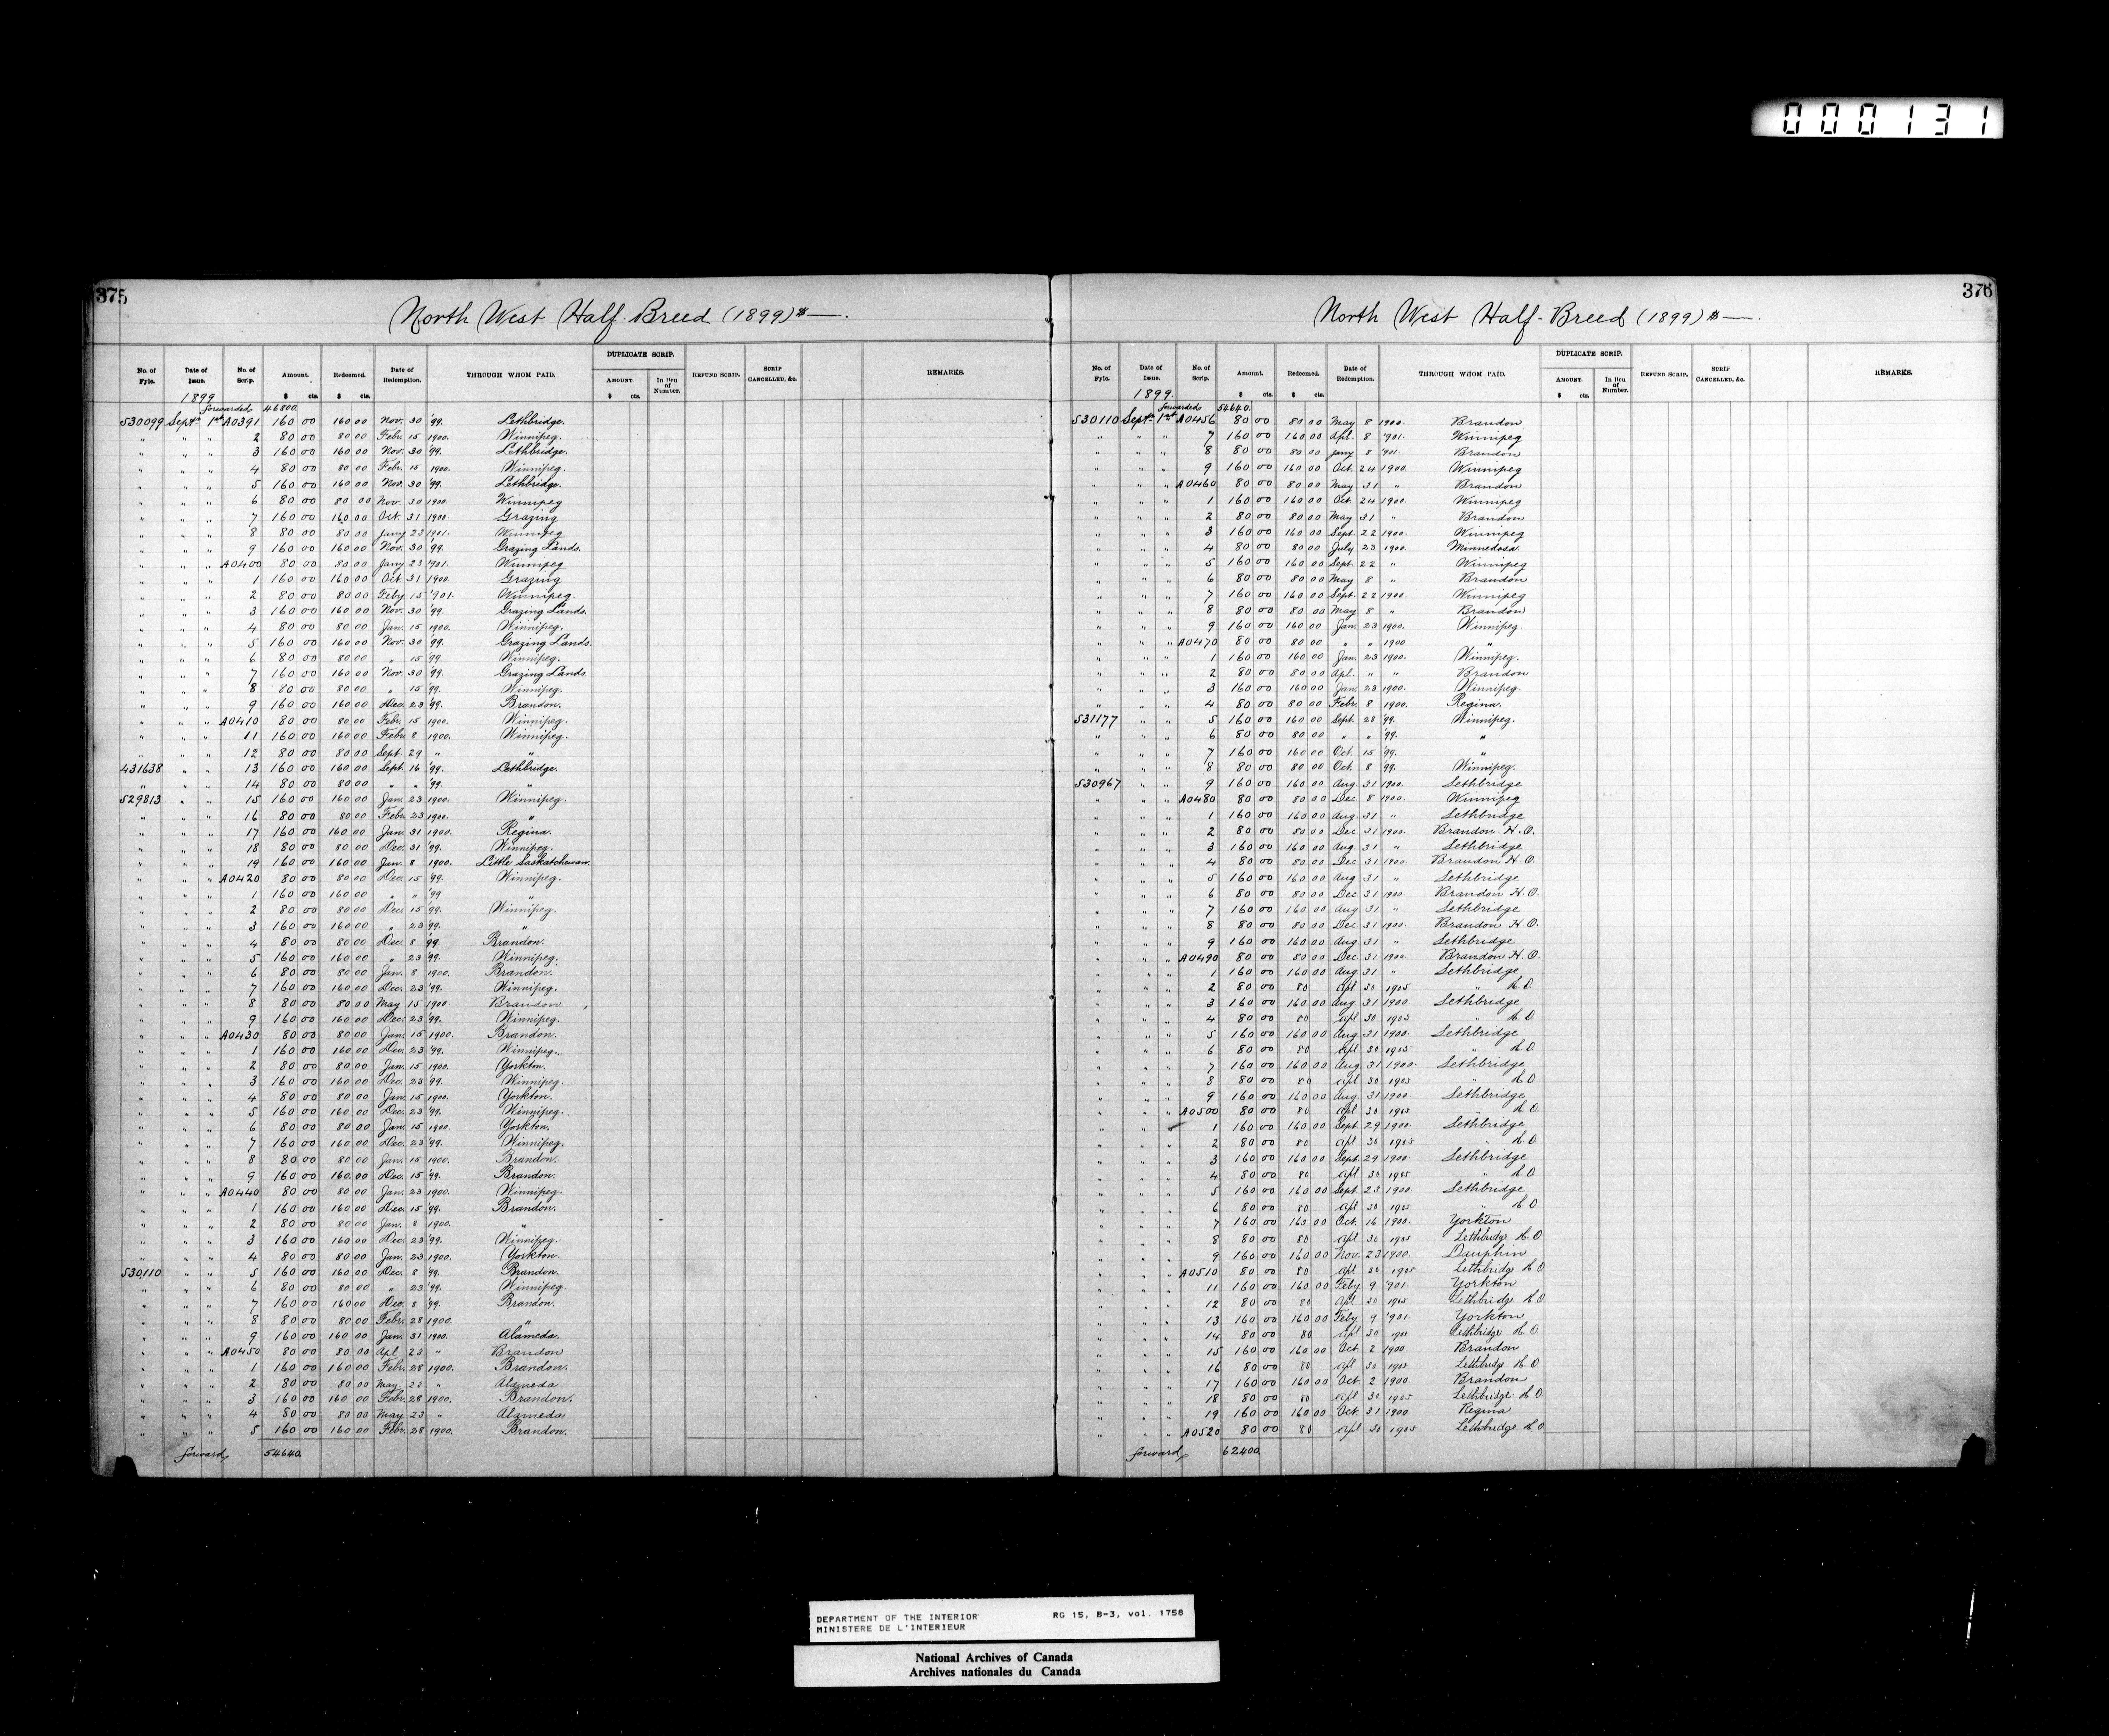 000131
375
North West Half-Breed (1899) $ —.
DUPLICATE SCRIP.
No. of Fyle. Date of Issue. No. of Scrip. Amount. Redeemed. Date of Redemption. THROUGH WHOM PAID. AMOUNT In lieu of Number. REFUND SCRIP. SCRIP CANCELLED, &c. REMARKS.
1899 $ cts. $ cts. $ cts.
forwarded 46800.
530099 Sept. 1st A0391 160 00 160 00 Nov. 30 '99. Lethbridge.
" " " 2 80 00 80 00 Febr. 15 1900. Winnipeg.
" " " 3 160 00 160 00 Nov. 30 '99. Lethbridge.
" " " 4 80 00 80 00 Febr. 15 1900. Winnipeg.
" " " 5 160 00 160 00 Nov. 30 '99. Lethbridge.
" " " 6 80 00 80 00 Nov. 30 1900. Winnipeg
" " " 7 160 00 160 00 Oct. 31 1900. Grazing
" " " 8 80 00 80 00 Jany 23 1901. Winnipeg
" " " 9 160 00 160 00 Nov. 30 '99. Grazing Lands.
" " " A0400 80 00 80 00 Jany 23 '901. Winnipeg
" " " 1 160 00 160 00 Oct 31 1900. Grazing
" " " 2 80 00 80 00 Feby 15 '901. Winnipeg.
" " " 3 160 00 160 00 Nov. 30 '99. Grazing Lands.
" " " 4 80 00 80 00 Jan. 15 1900. Winnipeg.
" " " 5 160 00 160 00 Nov. 30 '99. Grazing Lands.
" " " 6 80 00 80 00 " 15 '99. Winnipeg.
" " " 7 160 00 160 00 Nov. 30 '99. Grazing Lands
" " " 8 80 00 80 00 " 15 '99. Winnipeg.
" " " 9 160 00 160 00 Dec. 23 '99. Brandon.
" " " A0410 80 00 80 00 Febr. 15 1900. Winnipeg.
" " " 11 160 00 160 00 Febr. 8 1900. Winnipeg.
" " " 12 80 00 80 00 Sept. 29 " "
431638 " " 13 160 00 160 00 Sept. 16 '99. Lethbridge.
" " " 14 80 00 80 00 " " '99. "
529813 " " 15 160 00 160 00 Jan. 23 1900. Winnipeg.
" " " 16 80 00 80 00 Febr. 23 1900. "
" " " 17 160 00 160 00 Jan. 31 1900. Regina.
" " " 18 80 00 80 00 Dec. 31 '99. Winnipeg.
" " " 19 160 00 160 00 Jan. 8 1900. Little Saskatchewan.
" " " A0420 80 00 80 00 Dec. 15 '99. Winnipeg.
" " " 1 160 00 160 00 " " '99 "
" " " 2 80 00 80 00 Dec. 15 '99. Winnipeg.
" " " 3 160 00 160 00 " 23 '99. "
" " " 4 80 00 80 00 Dec. 8 '99. Brandon.
" " " 5 160 00 160 00 " 23 '99. Winnipeg.
" " " 6 80 00 80 00 Jan. 8 1900. Brandon.
" " " 7 160 00 160 00 Dec. 23 '99. Winnipeg.
" " " 8 80 00 80 00 May 15 1900. Brandon
" " " 9 160 00 160 00 Dec. 23 '99. Winnipeg.
" " " A0430 80 00 80 00 Jan. 15 1900. Brandon.
" " " 1 160 00 160 00 Dec. 23 '99. Winnipeg.
" " " 2 80 00 80 00 Jan. 15 1900. Yorkton.
" " " 3 160 00 160 00 Dec. 23 '99. Winnipeg.
" " " 4 80 00 80 00 Jan. 15 1900. Yorkton.
" " " 5 160 00 160 00 Dec. 23 '99. Winnipeg.
" " " 6 80 00 80 00 Jan. 15 1900. Yorkton.
" " " 7 160 00 160 00 Dec. 23 '99. Winnipeg.
" " " 8 80 00 80 00 Jan. 15 1900. Brandon.
" " " 9 160 00 160 00 Dec. 15 '99. Brandon.
" " " A0440 80 00 80 00 Jan. 23 1900. Winnipeg.
" " " 1 160 00 160 00 Dec. 15 '99. Brandon.
" " " 2 80 00 80 00 Jan. 8 1900. "
" " " 3 160 00 160 00 Dec. 23 '99. Winnipeg.
" " " 4 80 00 80 00 Jan. 23 1900. Yorkton.
530110 " " 5 160 00 160 00 Dec. 8 '99. Brandon.
" " " 6 80 00 80 00 " 23 '99. Winnipeg.
" " " 7 160 00 160 00 Dec. 8 '99. Brandon.
" " " 8 80 00 80 00 Febr. 28 1900. "
" " " 9 160 00 160 00 Jan. 31 1900. Alameda.
" " " A0450 80 00 80 00 Apl 23 " Brandon
" " " 1 160 00 160 00 Febr. 28 1900. Brandon.
" " " 2 80 00 80 00 May. 23 " Alameda
" " " 3 160 00 160 00 Febr. 28 1900. Brandon.
" " " 4 80 00 80 00 May 23 " Alameda
" " " 5 160 00 160 00 Febr. 28 1900. Brandon.
forward, 54640.
376
North West Half-Breed (1899) $ —.
DUPLICATE SCRIP.
No. of Fyle. Date of Issue. No. of Scrip. Amount. Redeemed. Date of Redemption. THROUGH WHOM PAID. AMOUNT. In lieu of Number. REFUND SCRIP. SCRIP CANCELLED, &c. REMARKS.
1899. $ cts. $ cts. $ cts.
forwarded 54640.
530110 Sept. 1st A0456 80 00 80 00 May 8 1900. Brandon
" " " 7 160 00 160 00 Apl. 8 '901. Winnipeg
" " " 8 80 00 80 00 Jany 8 '901. Brandon
" " " 9 160 00 160 00 Oct. 24 1900. Winnipeg
" " " A0460 80 00 80 00 May 31 " Brandon
" " " 1 160 00 160 00 Oct. 24 1900. Winnipeg
" " " 2 80 00 80 00 May 31 " Brandon
" " " 3 160 00 160 00 Sept. 22 1900. Winnipeg
" " " 4 80 00 80 00 July 23 1900. Minnedosa
" " " 5 160 00 160 00 Sept. 22 " Winnipeg
" " " 6 80 00 80 00 May 8 " Brandon
" " " 7 160 00 160 00 Sept. 22 1900. Winnipeg
" " " 8 80 00 80 00 May 8 " Brandon
" " " 9 160 00 160 00 Jan. 23 1900. Winnipeg.
" " " A0470 80 00 80 00 " " 1900 "
" " " 1 160 00 160 00 Jan. 23 1900. Winnipeg.
" " " 2 80 00 80 00 Apl. " " Brandon
" " " 3 160 00 160 00 Jan. 23 1900. Winnipeg.
" " " 4 80 00 80 00 Febr. 8 1900. Regina.
531177 " " 5 160 00 160 00 Sept. 28 '99. Winnipeg.
" " " 6 80 00 80 00 " " '99. "
" " " 7 160 00 160 00 Oct. 15 '99. "
" " " 8 80 00 80 00 Oct. 8 '99. Winnipeg.
530967 " " 9 160 00 160 00 Aug. 31 1900. Lethbridge
" " " A0480 80 00 80 00 Dec 8 1900. Winnipeg
" " " 1 160 00 160 00 Aug. 31 " Lethbridge
" " " 2 80 00 80 00 Dec. 31 1900. Brandon H.O.
" " " 3 160 00 160 00 Aug. 31 " Lethbridge
" " " 4 80 00 80 00 Dec 31 1900. Brandon H.O.
" " " 5 160 00 160 00 Aug 31 " Lethbridge
" " " 6 80 00 80 00 Dec 31 1900. Brandon H.O.
" " " 7 160 00 160 00 Aug 31 " Lethbridge
" " " 8 80 00 80 00 Dec 31 1900. Brandon H.O.
" " " 9 160 00 160 00 Aug 31 " Lethbridge
" " " A0490 80 00 80 00 Dec 31 1900 Brandon H.O.
" " " 1 160 00 160 00 Aug 31 " Lethbridge
" " " 2 80 00 80 Apl 30 1905 " H.O
" " " 3 160 00 160 00 Aug 31 1900. Lethbridge
" " " 4 80 00 80 Apl 30 1905 " H.O
" " " 5 160 00 160 00 Aug. 31 1900. Lethbridge
" " " 6 80 00 80 Apl 30 1905 " H.O
" " " 7 160 00 160 00 Aug. 31 1900. Lethbridge
" " " 8 80 00 80 Apl 30 1905 " H.O
" " " 9 160 00 160 00 Aug. 31 1900. Lethbridge
" " " A0500 80 00 80 Apl 30 1905 " H.O
" " " 1 160 00 160 00 Sept 29 1900. Lethbridge
" " " 2 80 00 80 Apl 30 1905 " H.O
" " " 3 160 00 160 00 Sept. 29 1900. Lethbridge
" " " 4 80 00 80 Apl 30 1905 " H.O
" " " 5 160 00 160 00 Sept. 23 1900. Lethbridge
" " " 6 80 00 80 Apl 30 1905 " H.O
" " " 7 160 00 160 00 Oct. 16 1900. Yorkton
" " " 8 80 00 80 Apl 30 1905 Lethbridge H.O
" " " 9 160 00 160 00 Nov. 23 1900. Dauphin
" " " A0510 80 00 80 Apl 30 1905 Lethbridge H.O
" " " 11 160 00 160 00 Feby 9 '901. Yorkton
" " " 12 80 00 80 Apl 30 1905 Lethbridge H.O
" " " 13 160 00 160 00 Feby 9 '901. Yorkton
" " " 14 80 00 80 Apl 30 1905 Lethbridge H.O
" " " 15 160 00 160 00 Oct. 2 1900. Brandon
" " " 16 80 00 80 Apl 30 1905 Lethbridge H.O
" " " 17 160 00 160 00 Oct. 2 1900. Brandon
" " " 18 80 00 80 Apl 30 1905 Lethbridge H.O
" " " 19 160 00 160 00 Oct 31 1900 Regina
" " " A0520 80 00 80 Apl 30 1905 Lethbridge H.O
forward, 62400.
DEPARTMENT OF THE INTERIOR RG 15, B-3, vol. 1758
MINISTERE DE L'INTERIEUR
National Archives of Canada
Archives nationales du Canada